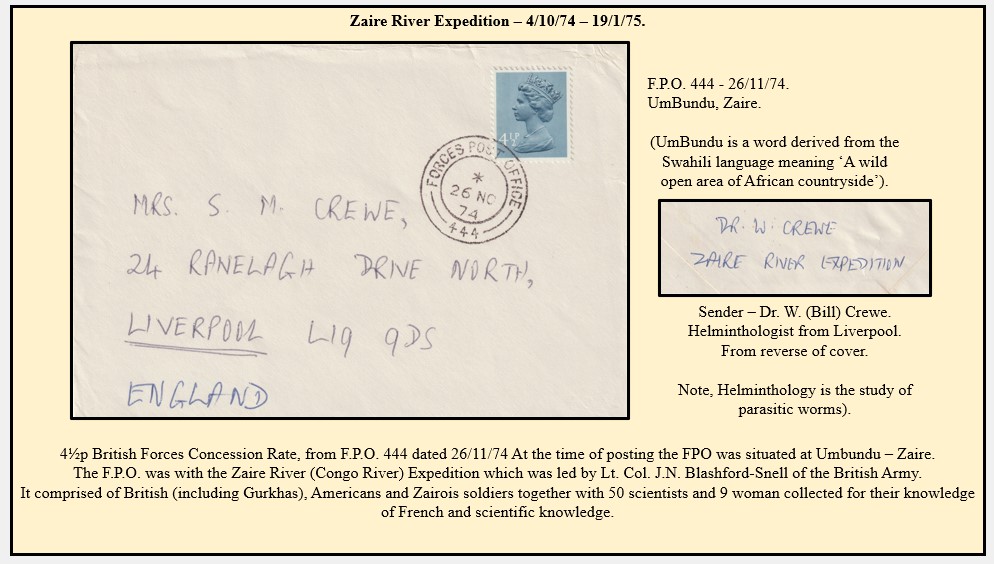 Zaire River Expedition – 4/10/74 – 19/1/75.
4½P
FORCES POST OFFICE
*
26 NO
74
444
MRS. S. M. CREWE,
24 RANELAGH DRIVE NORTH,
LIVERPOOL L19 9DS
ENGLAND
F.P.O. 444 - 26/11/74.
UmBundu, Zaire.
(UmBundu is a word derived from the
Swahili language meaning ‘A wild
open area of African countryside’).
DR. W. CREWE
ZAIRE RIVER EXPEDITION
Sender – Dr. W. (Bill) Crewe.
Helminthologist from Liverpool.
From reverse of cover.
Note, Helminthology is the study of
parasitic worms).
4½p British Forces Concession Rate, from F.P.O. 444 dated 26/11/74 At the time of posting the FPO was situated at Umbundu – Zaire.
The F.P.O. was with the Zaire River (Congo River) Expedition which was led by Lt. Col. J.N. Blashford-Snell of the British Army.
It comprised of British (including Gurkhas), Americans and Zairois soldiers together with 50 scientists and 9 woman collected for their knowledge
of French and scientific knowledge.